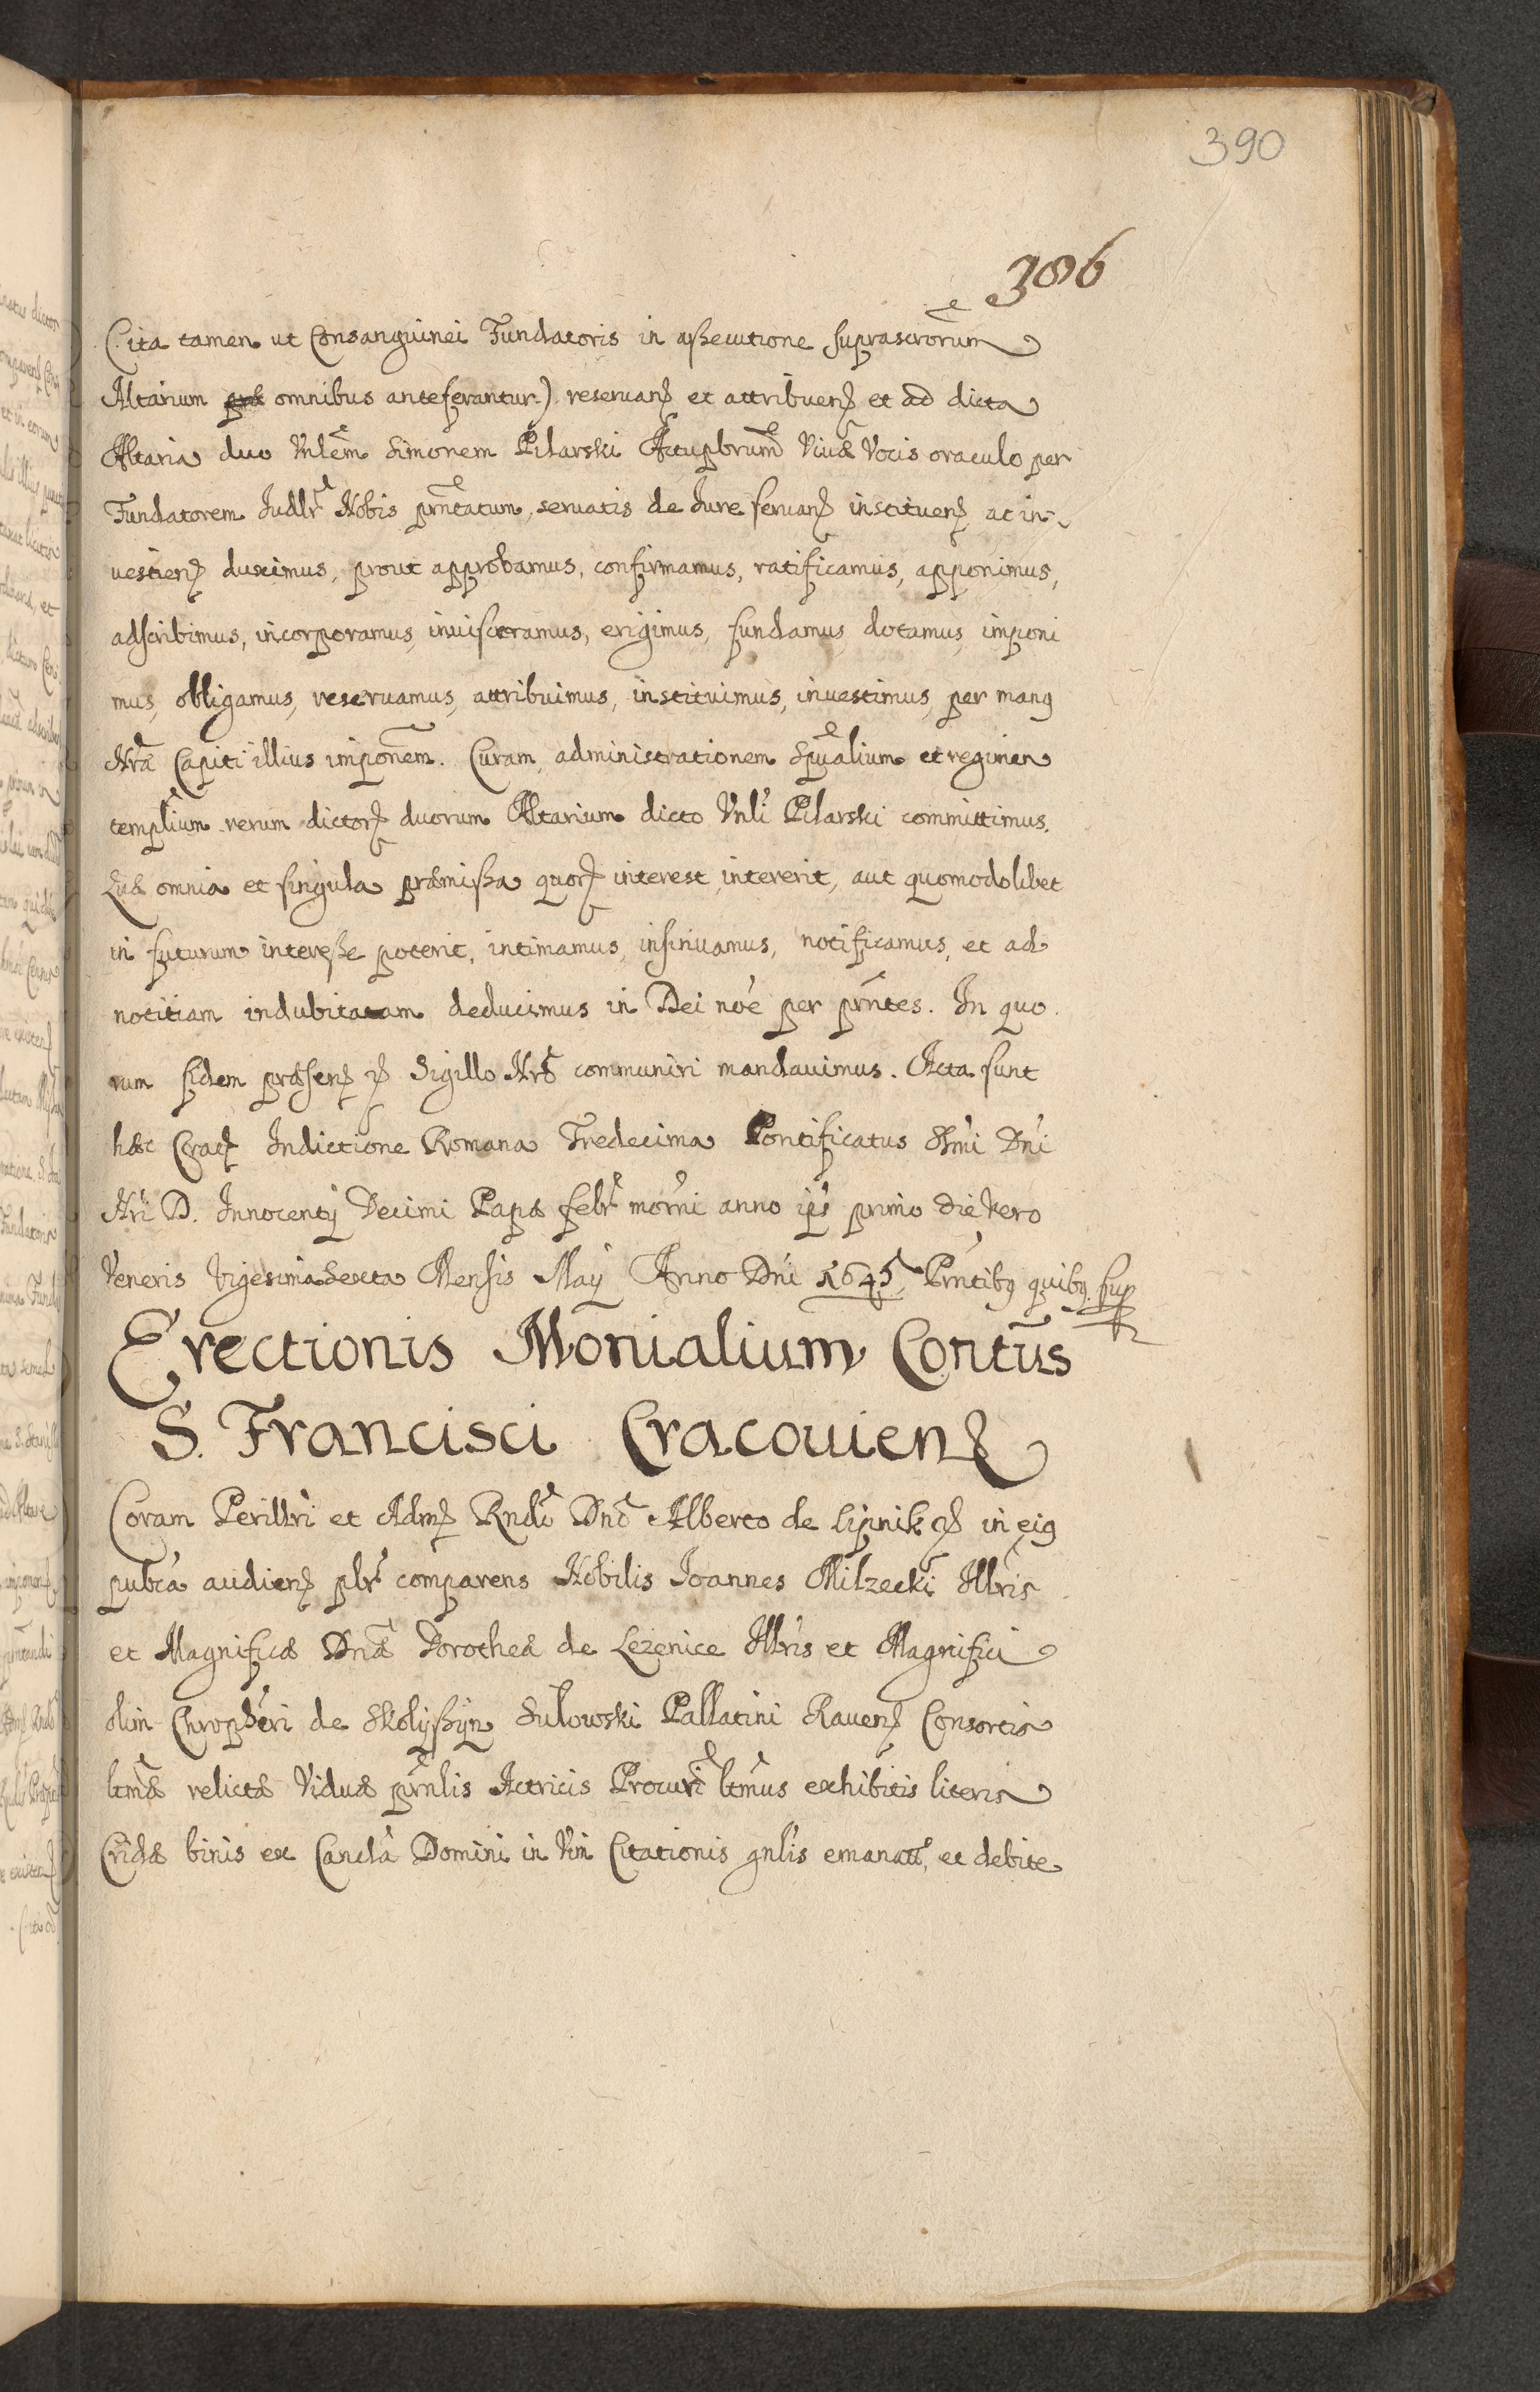 390
386
(ita tamen ut Consanguinei Fundatoris in assecutione suprascrorum
Altarium omnibus anteferantur.) reseruan et attribuen et ad dicta
Altaria duo Vnlem Simonem Pilarski Actupbrum Viuæ Vocis oraculo per
Fundatorem Iudlr Nobis prntatum, seruatis de Iure seruan instituen ac in-
uestien duximus, prout approbamus, confirmamus, ratificamus, apponimus,
adscribimus, incorporamus, inuisceramus, erigimus, fundamus, dotamus, imponi
mus, obligamus, reseruamus, attribuimus, instituimus, inuestimus, per manq
Nrã Capiti illius imponem. Curam, administrationem Spualium et regimen
templium rerum dictor duorum Altarium dicto Vnli Pilarski committimus.
Quæ omnia et singula præmissa quor interest, intererit, aut quomodolibet
in futurum interesse poterit, intimamus, insinuamus, notificamus, et ad
notitiam indubitatam deducimus in Dei noe per prntes. In quo
rum fidem præsen Sigillo Nro communiri mandauimus. Acta sunt
hæc Crac Indictione Romana Tredecima Pontificatus Smi Dni
Nri D. Innocentij Decimi Papæ febr morni anno ips primo die vero
Veneris Vigesima Sexta Mensis Maij Anno Dni 1645 Prntibq quibq sup
Erectionis Monialium Contus
S. Francisci Cracouien
Coram Perillri et Adm Rndo Dno Alberto de Lipnik in eiq
pubca audien plr comparens Nobilis Ioannes Milzecki Illris
et Magnificæ Dnæ Dorotheæ de Lezenice Illris et Magnifici
olim Chropheri de Skolyszyn Sulowski Pallatini Rauen Consortis
ltmæ relictæ Viduæ prnlis Actricis Procur ltmus exhibitis literis
Cridæ binis ex Canclã Domini in Vim Citationis gnlis emanatt, et debite